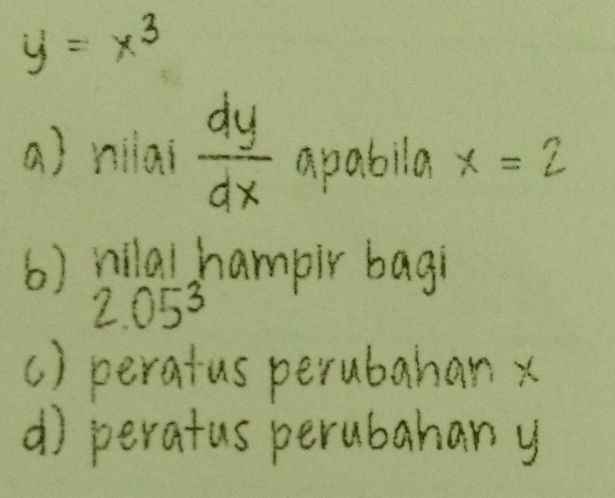 y = x³
a) nilai dy/dx apabila x = 2
b) nilai hampir bagi
2.05³
c) peratus perubahan x
d) peratus perubahan y